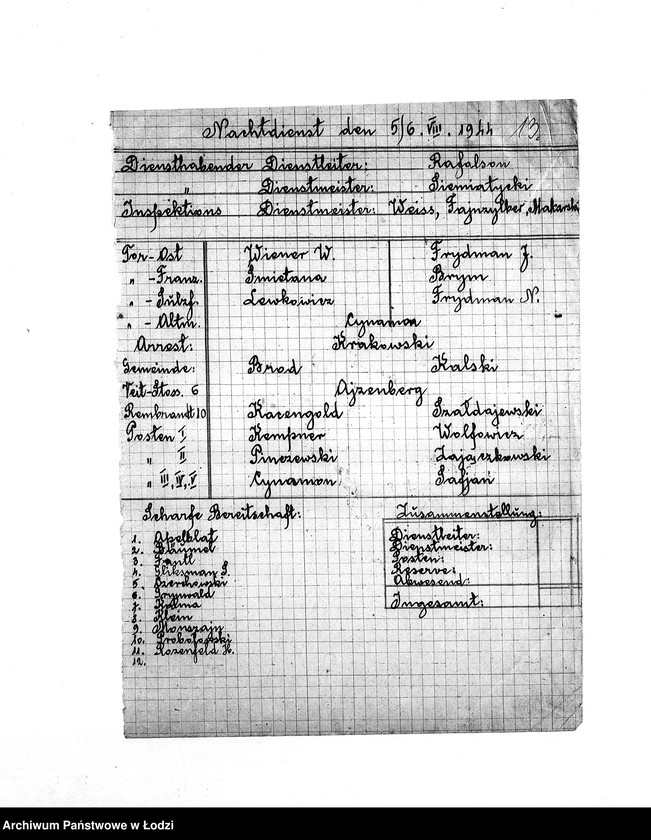 Nachtdienst den 5/6. VIII. 1944 13.
Diensthabender Dienstleiter: Rafalson
" Dienstmeister: Siemiatycki
Inspektions Dienstmeister: Weiss, Fajnzylber, Makarski
Tor-Ost Wiener W. Frydman J.
" -Franz. Śmietana Brym
" - Sulzf. Lewkowicz Frydman N.
" - Altm. Cynamon
Arrest: Krakowski
Gemeinde: Brod Kalski
Veit-Stoss. 6 Ajzenberg
Rembrandt 10 Kacengold Szałdajewski
Posten I Kempner Wolfowicz
" II Pinczewski Zajączkowski
" III, IV, V Cynamon Safjan
Scharfe Bereitschaft:
1. Apelblat
2. Bäumel
3. Fantl
4. Gliksman S.
5. Ozerchowski
6. Grynwald
7. Kalma
8. Klein
9. Monszajn
10. Probołowski
11. Rozenfeld H.
12.
Zusammenstellung:
Dienstleiter:
Dienstmeister:
Posten:
Reserve:
Abwesend:
Ingesamt:
Archiwum Państwowe w Łodzi